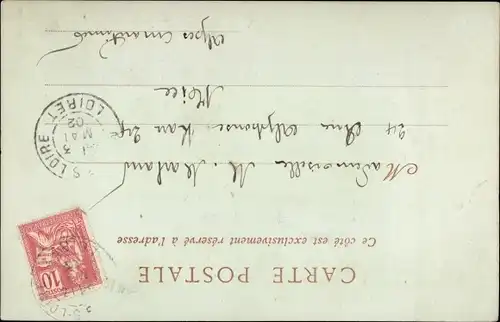 CARTE POSTALE
Ce côté est exclusivement réservé à l'adresse
Mademoiselle M.
24 Rue Alphonse Karr 24
Nice
Alpes Maritimes
LOIRET
3
MAI
02
LOIRE
10